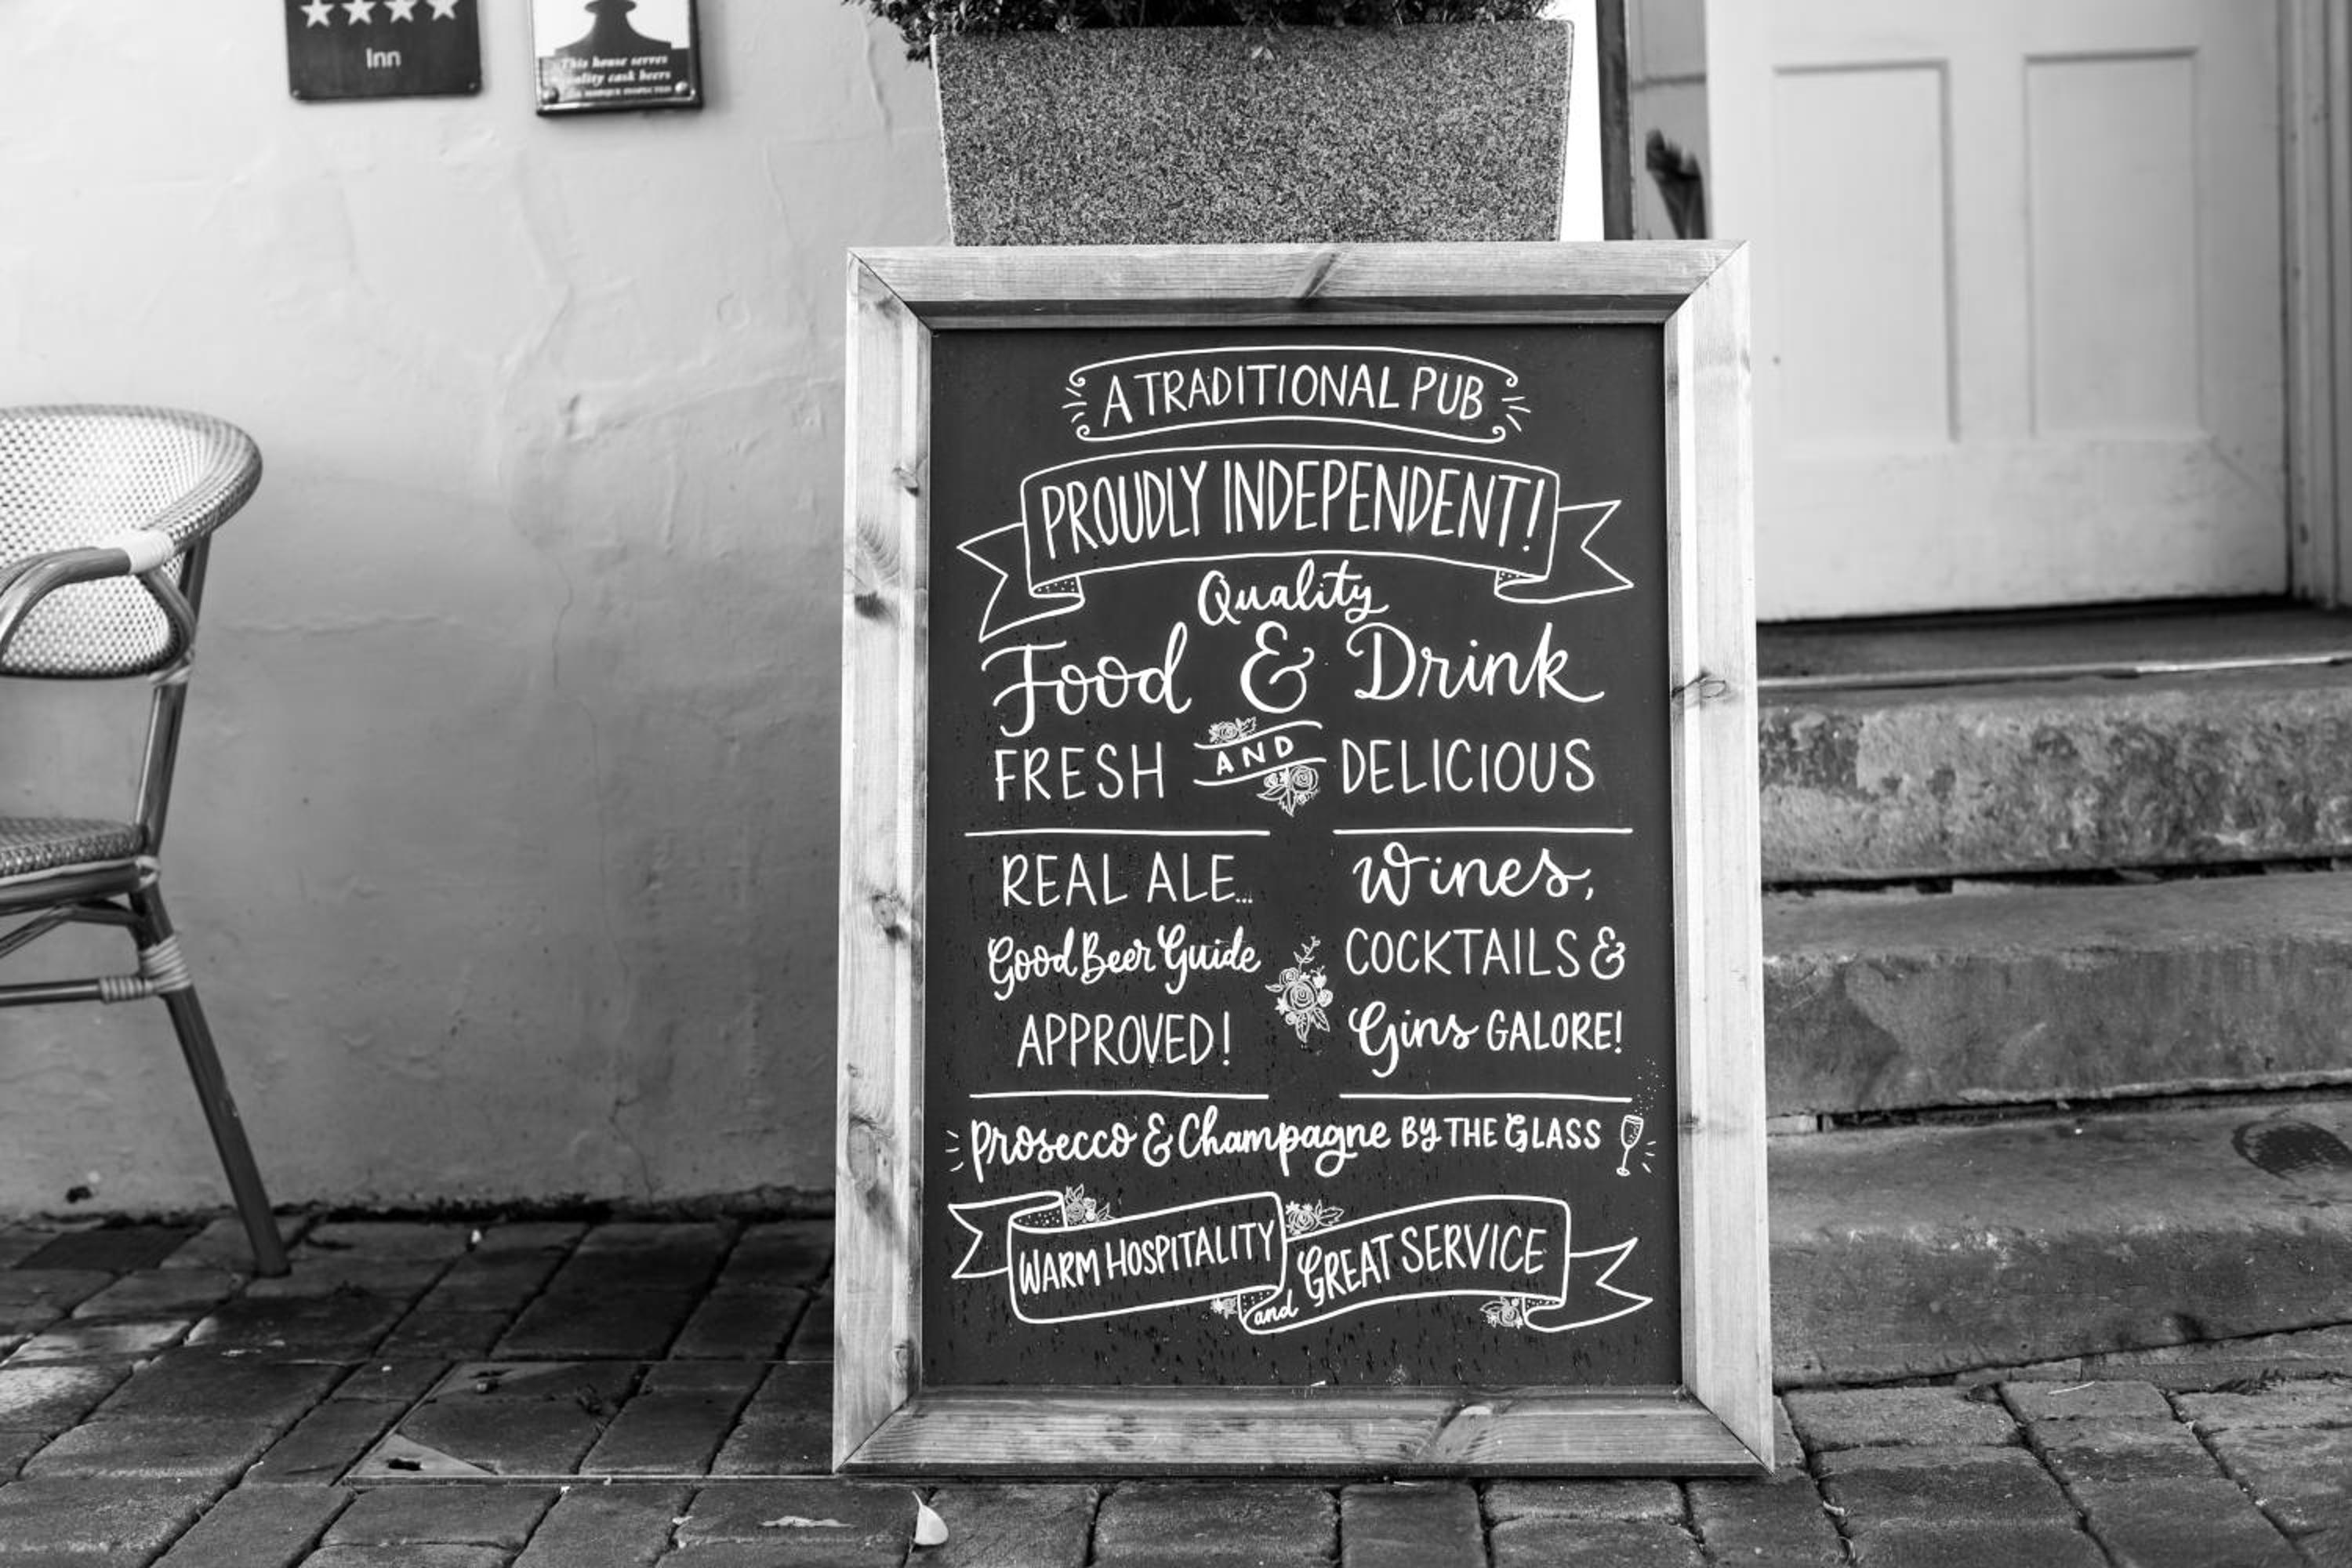 Inn
This house serves
quality cask beers
A TRADITIONAL PUB
PROUDLY INDEPENDENT!
Quality
Food & Drink
FRESH AND DELICIOUS
REAL ALE...
Good Beer Guide
APPROVED!
Wines,
COCKTAILS &
Gins GALORE!
Prosecco & Champagne BY THE GLASS
WARM HOSPITALITY and GREAT SERVICE